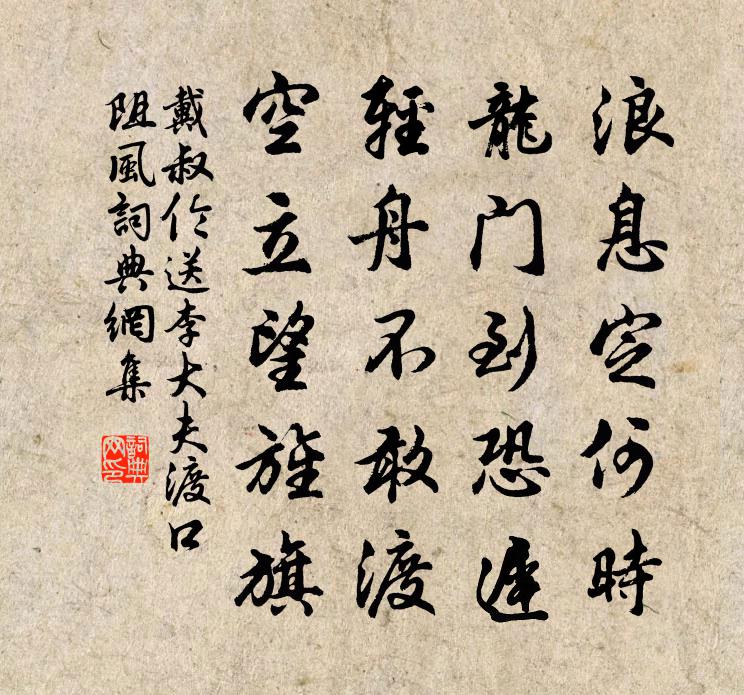 浪息定何時
龍门到恐遲
輕舟不敢渡
空立望旌旗
戴叔伦送李大夫渡口
阻風詞典網集
詞典网印